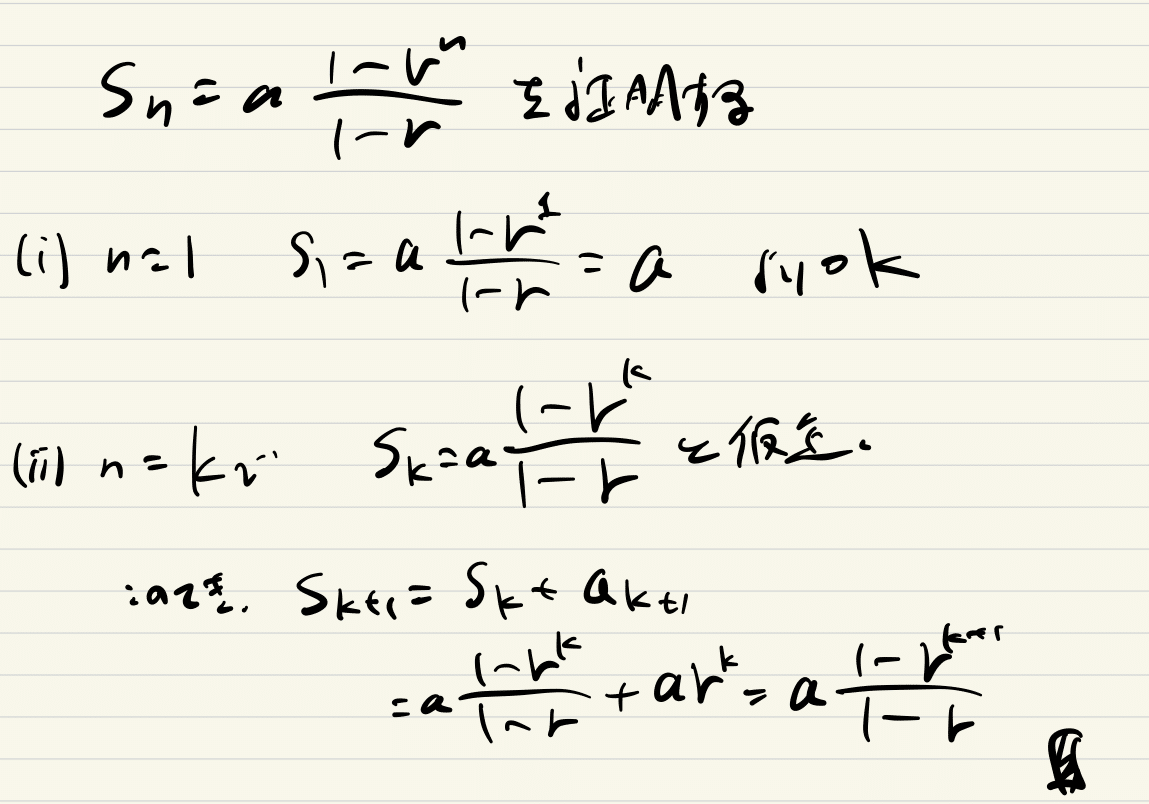 Sₙ = a (1-rⁿ)/(1-r) を証明する
(i) n=1 S₁ = a (1-r¹)/(1-r) = a より ok
(ii) n = k で Sₖ = a (1-rᵏ)/(1-r) と仮定.
このとき. Sₖ₊₁ = Sₖ + aₖ₊₁
= a (1-rᵏ)/(1-r) + arᵏ = a (1-rᵏ⁺¹)/(1-r)